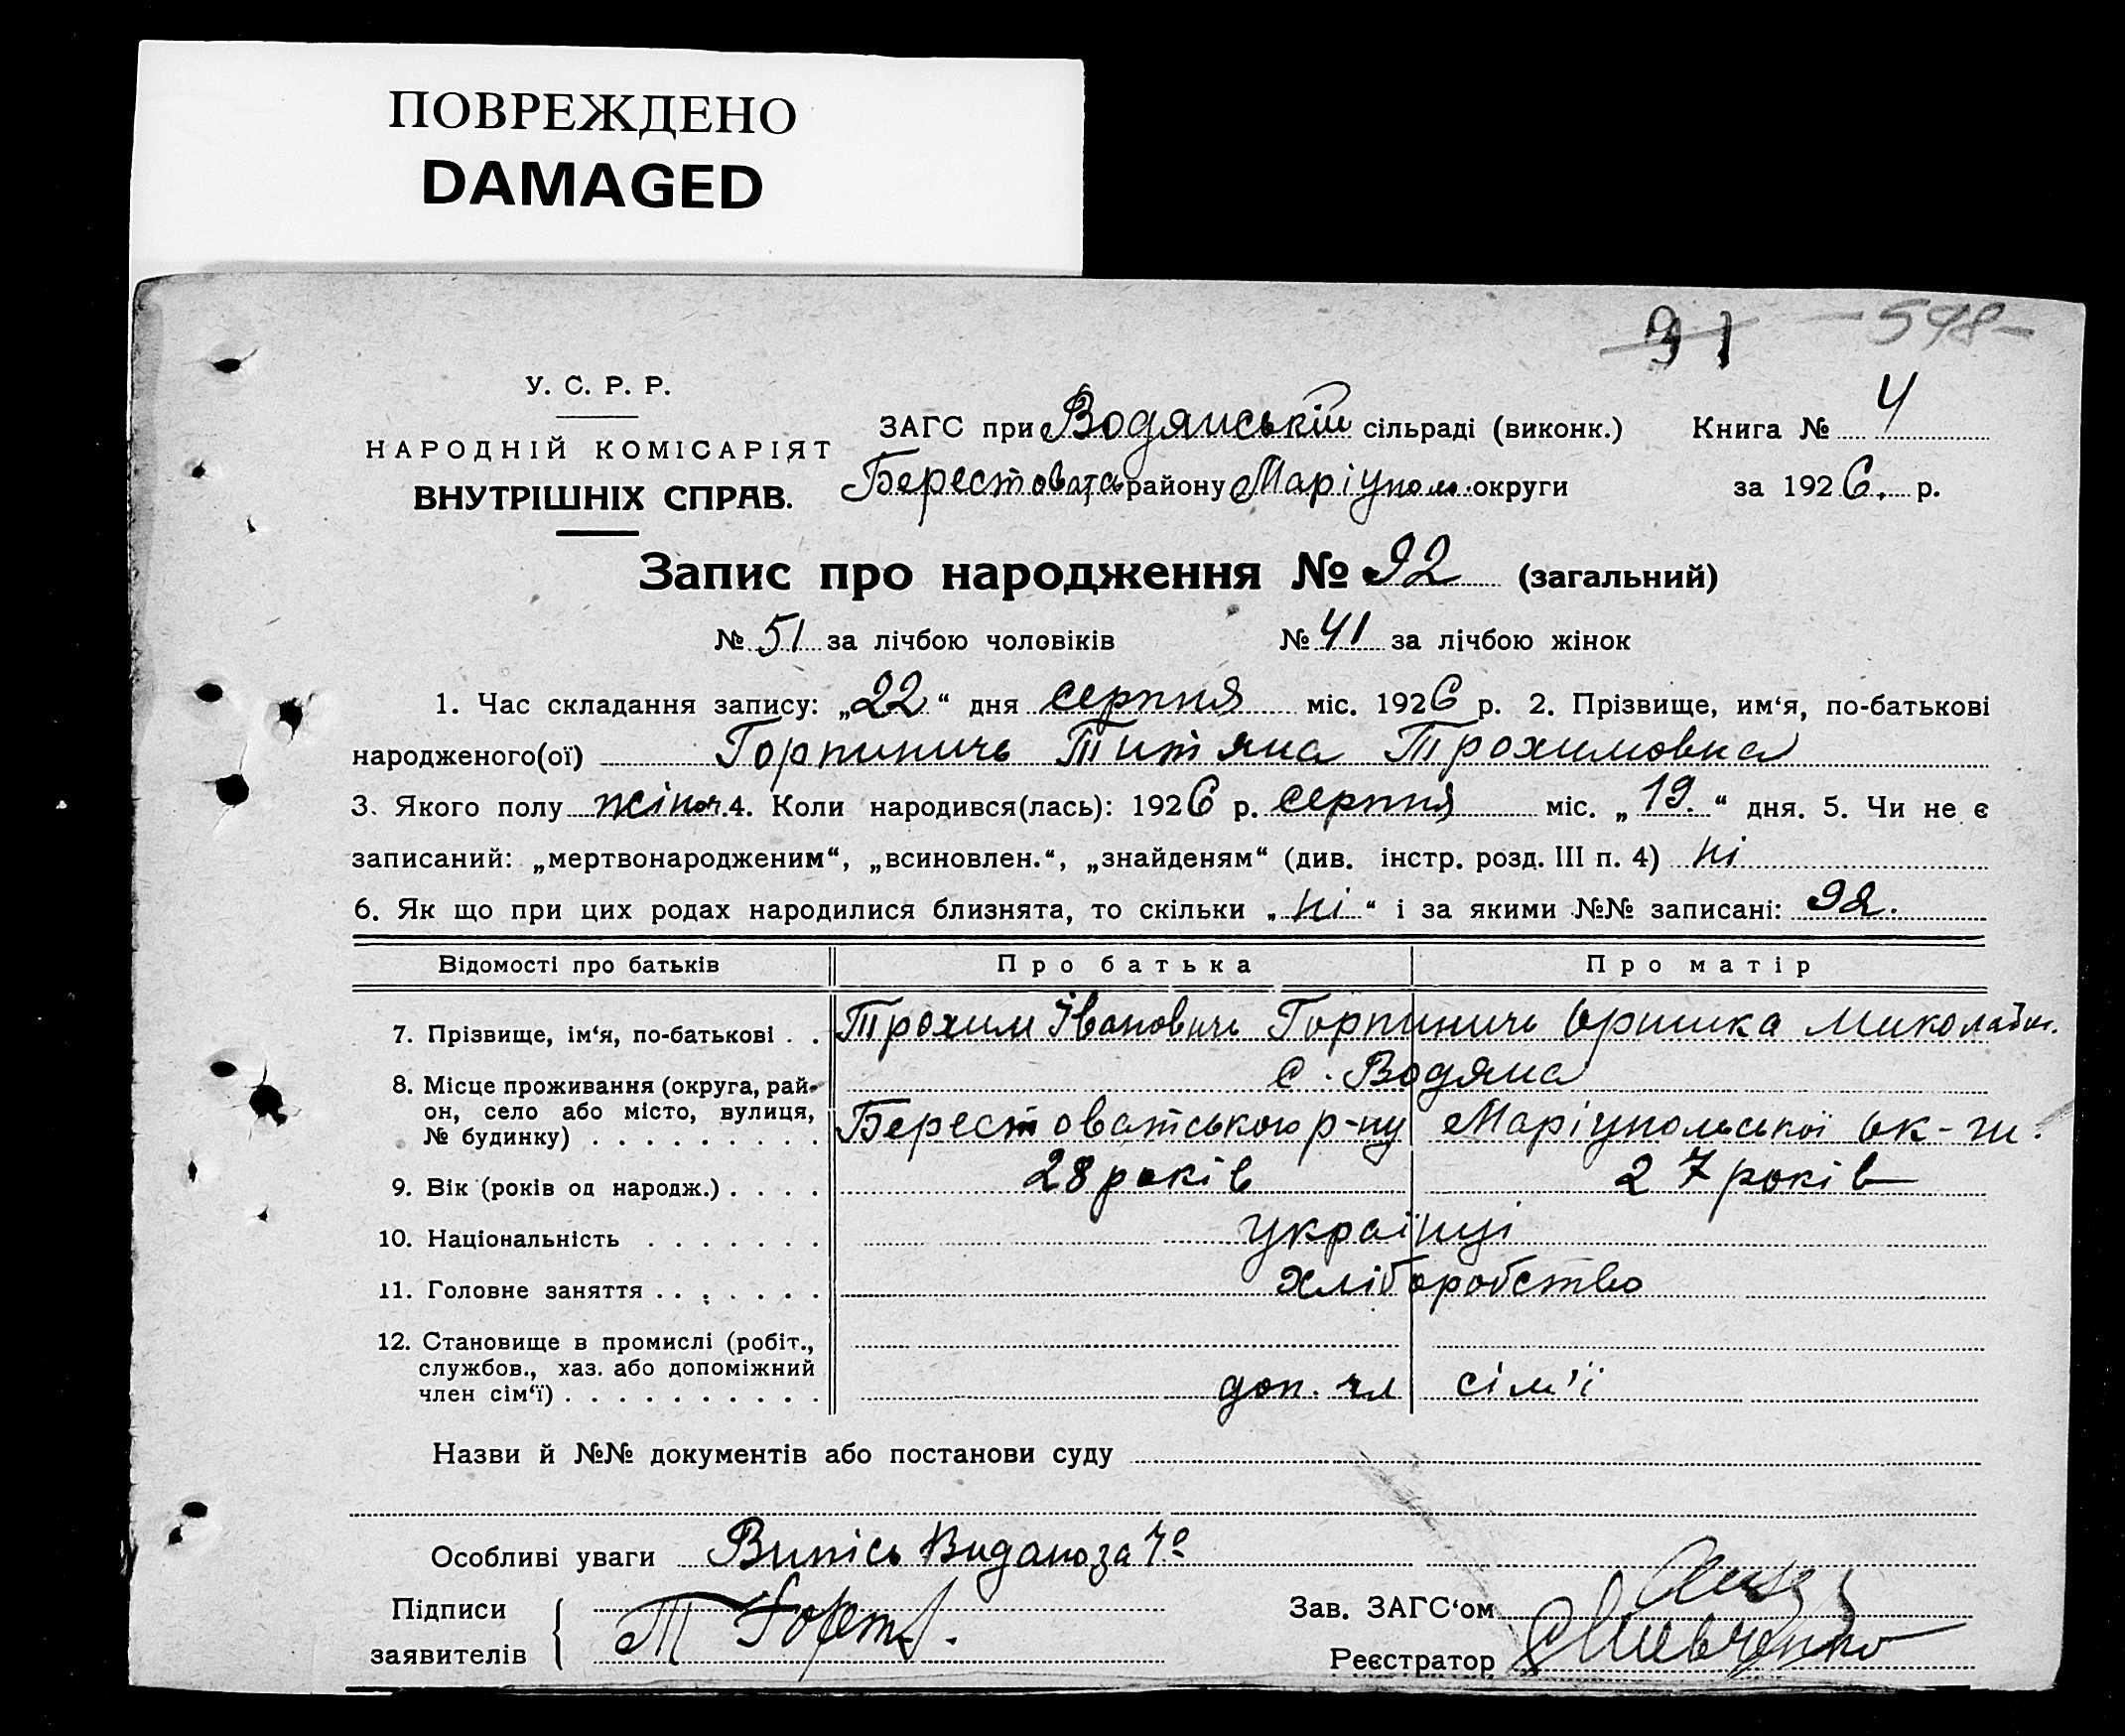 ПОВРЕЖДЕНО
DAMAGED
91 -598-
У. С. Р. Р.
НАРОДНІЙ КОМІСАРІЯТ
ВНУТРІШНІХ СПРАВ.
ЗАГС при Водянській сільраді (виконк.) Книга № 4
Берестоватськ району Маріупол. округи за 1926. р.
Запис про народження № 92 (загальний)
№ 51 за лічбою чоловіків № 41 за лічбою жінок
1. Час складання запису: „22“ дня серпня міс. 1926 р. 2. Прізвище, им‘я, по-батькові
народженого(ої) Горпиничь Титяна Трохимовна
3. Якого полу жіноч. 4. Коли народився(лась): 1926 р. серпня міс. „19.“ дня. 5. Чи не є
записаний: „мертвонародженим“, „всиновлен.“, „знайденям“ (див. інстр. розд. III п. 4) ні
6. Як що при цих родах народилися близнята, то скільки „ні“ і за якими №№ записані: 92.
Відомості про батьків Про батька Про матір
7. Прізвище, ім‘я, по-батькові . . Трохим Іванович Горпиничь Оришка Миколаївн.
8. Місце проживання (округа, рай- с. Водяна
он, село або місто, вулиця,
№ будинку) . . . . . . . . . Берестоватського р-ну Маріупольської ок-ги.
9. Вік (років од народж.) . . . . 28 років 27 років
10. Національність . . . . . . . українці
11. Головне заняття . . . . . . . хліборобство
12. Становище в промислі (робіт.,
службов., хаз. або допоміжний
член сім‘ї) . . . . . . . . . . доп. чл сім'ї
Назви й №№ документів або постанови суду
Особливі уваги Випісь Видано за №
Підписи
заявителів Т Горп
Зав. ЗАГС‘ом
Реєстратор Шевченко